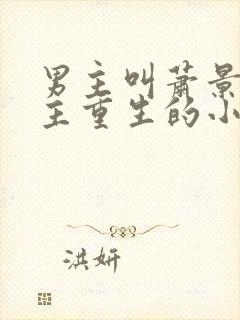 男主叫萧景
主重生的小
洪妍